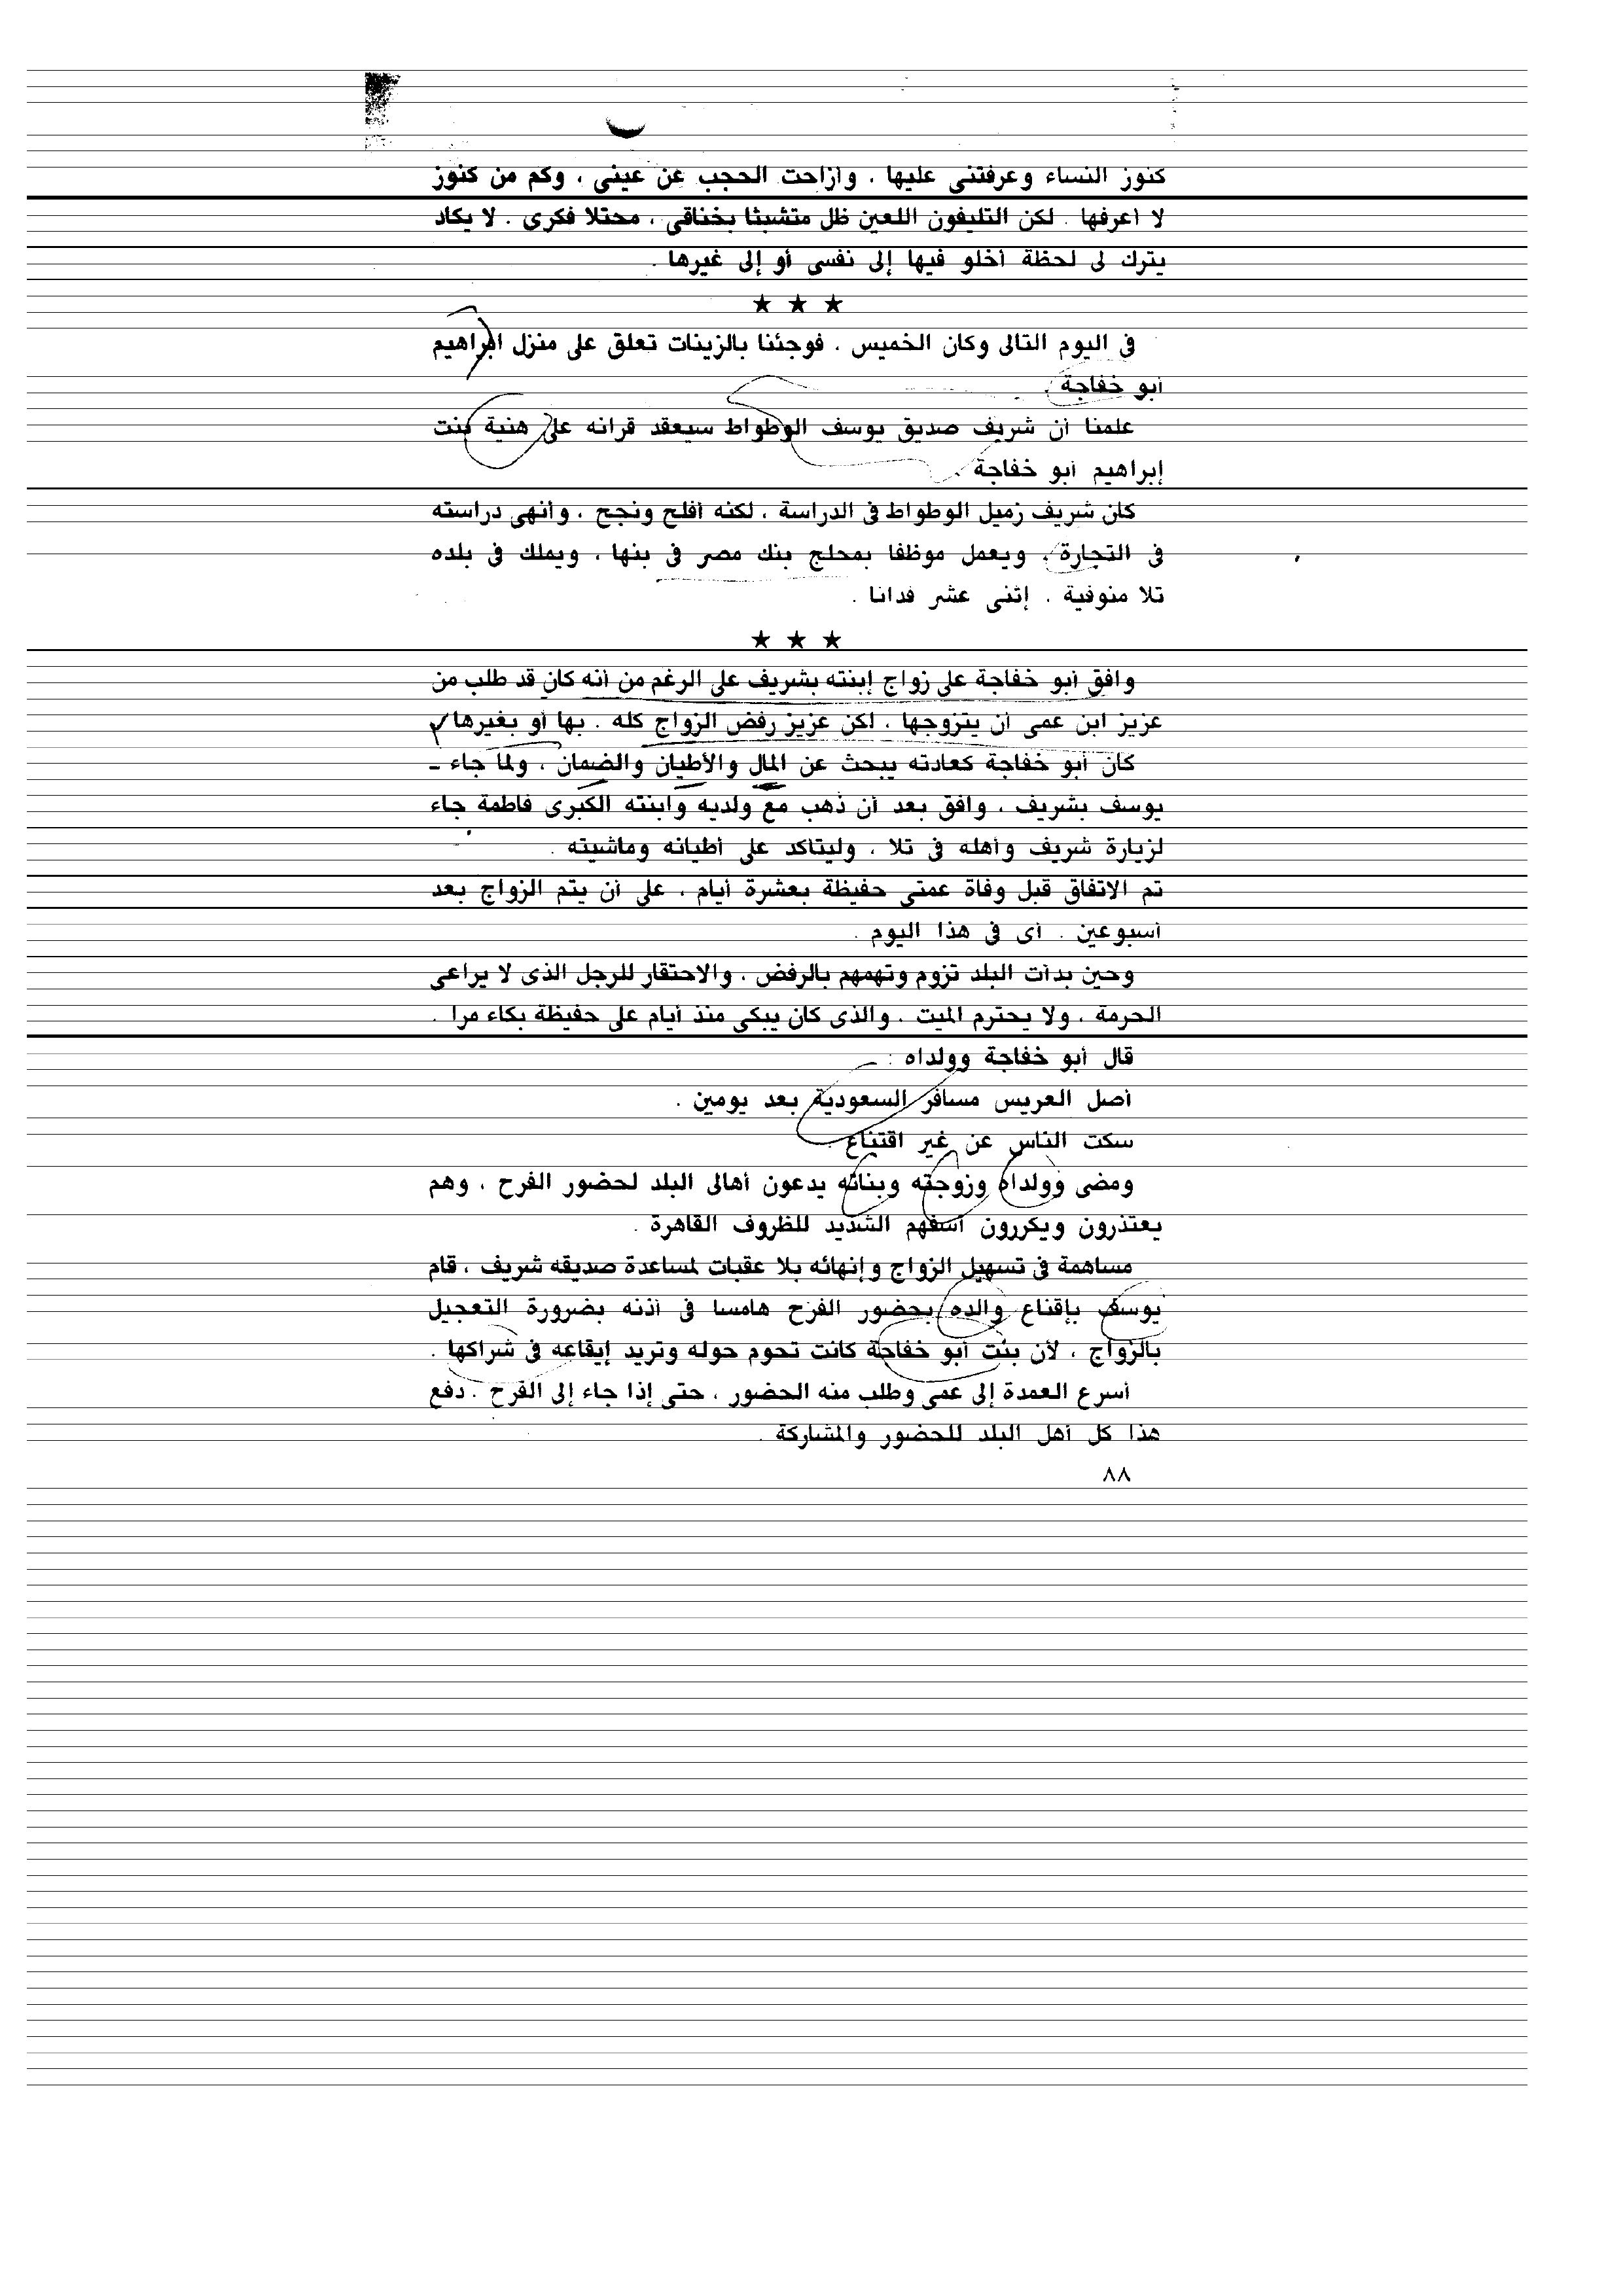 كنوز النساء وعرفتنى عليها ، وأزاحت الحجب عن عينى ، وكم من كنوز
لا أعرفها . لكن التليفون اللعين ظل متشبثا بخناقى ، محتلا فكرى . لا يكاد
يترك لى لحظة أخلو فيها إلى نفسى أو إلى غيرها .
★ ★ ★
فى اليوم التالى وكان الخميس ، فوجئنا بالزينات تعلق على منزل ابراهيم
أبو خفاجة .
علمنا أن شريف صديق يوسف الوطواط سيعقد قرانه على هنية بنت
إبراهيم أبو خفاجة .
كان شريف زميل الوطواط فى الدراسة ، لكنه أفلح ونجح ، وأنهى دراسته
فى التجارة ، ويعمل موظفا بمحلج بنك مصر فى بنها ، ويملك فى بلده
تلا منوفية ، إثنى عشر فدانا .
★ ★ ★
وافق أبو خفاجة على زواج إبنته بشريف على الرغم من أنه كان قد طلب من
عزيز ابن عمى أن يتزوجها ، لكن عزيز رفض الزواج كله . بها أو بغيرها
كان أبو خفاجة كعادته يبحث عن المال والأطيان والضمان ، ولما جاء -
يوسف بشريف ، وافق بعد أن ذهب مع ولديه وابنته الكبرى فاطمة جاء
لزيارة شريف وأهله فى تلا ، وليتأكد على أطيانه وماشيته .
تم الاتفاق قبل وفاة عمتى حفيظة بعشرة أيام ، على أن يتم الزواج بعد
أسبوعين . أى فى هذا اليوم .
وحين بدأت البلد تزوم وتهمهم بالرفض ، والاحتقار للرجل الذى لا يراعى
الحرمة ، ولا يحترم الميت ، والذى كان يبكى منذ أيام على حفيظة بكاء مرا .
قال أبو خفاجة وولداه :
أصل العريس مسافر السعودية بعد يومين .
سكت الناس عن غير اقتناع .
ومضى وولداه وزوجته وبناته يدعون أهالى البلد لحضور الفرح ، وهم
يعتذرون ويكررون أسفهم الشديد للظروف القاهرة .
مساهمة فى تسهيل الزواج وإنهائه بلا عقبات لمساعدة صديقه شريف ، قام
يوسف بإقناع والده بحضور الفرح هامسا فى أذنه بضرورة التعجيل
بالزواج ، لأن بنت أبو خفاجة كانت تحوم حوله وتريد إيقاعه فى شراكها .
أسرع العمدة إلى عمى وطلب منه الحضور ، حتى إذا جاء إلى الفرح . دفع
هذا كل أهل البلد للحضور والمشاركة .
٨٨